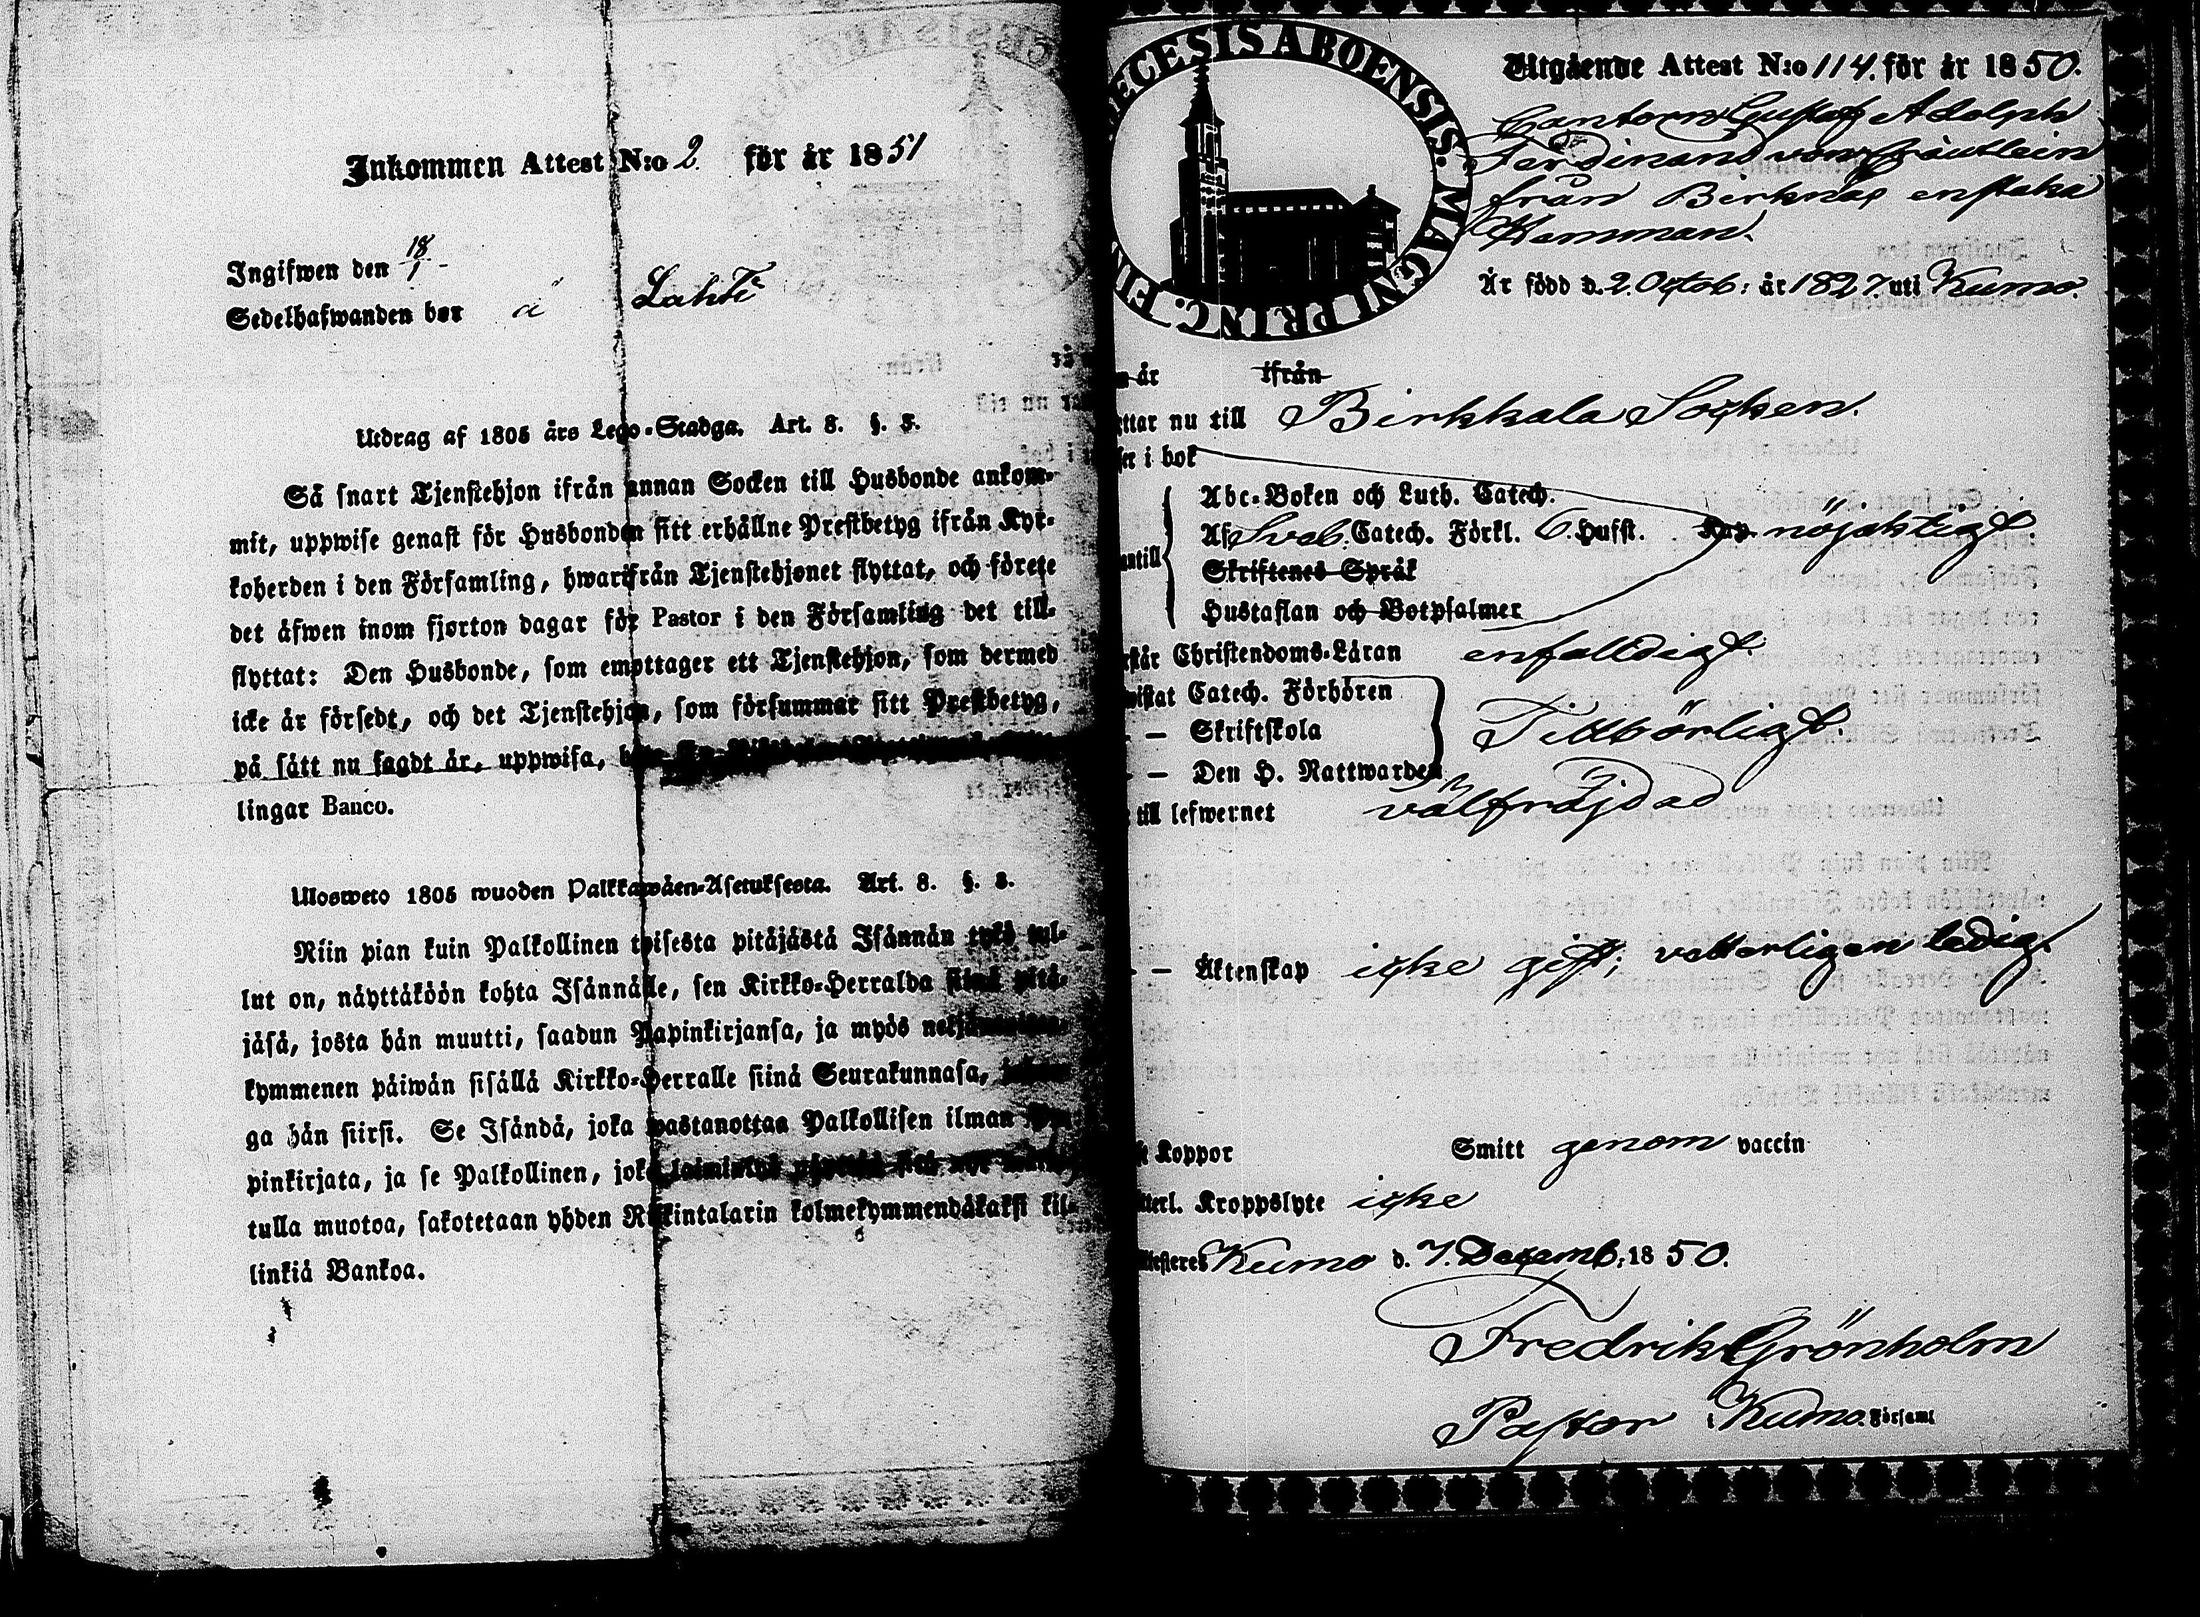 Inkommen Attest N:o 2 för år 1851
Ingifwen den 18/1
Sedelhafwanden bor å Lahti
Utdrag af 1805 års Lego-Stadga. Art. 8. §. 3.
Så snart Tjenstehjon ifrån annan Socken till Husbonde ankom-
mit, uppwise genast för Husbonden sitt erhållne Prestbetyg ifrån Kyr-
koherden i den Församling, hwarifrån Tjenstehjonet flyttat, och förete
det äfwen inom fjorton dagar för Pastor i den Församling det till-
flyttat: Den Husbonde, som emottager ett Tjenstehjon, som dermed
icke är försedt, och det Tjenstehjon, som försummar sitt Prestbetyg,
på sätt nu sagdt är, uppwisa,
lingar Banco.
Ulosweto 1805 wuoden Palkkawäen-Asetuksesta. Art. 8. §. 3.
Niin pian kuin Palkollinen toisesta pitäjästä Isännän tykö tul-
lut on, näyttäköön kohta Isännälle, sen Kirkko-Herralda siinä pitä-
jäsä, josta hän muutti, saadun Papinkirjansa, ja myös
kymmenen päiwän sisällä Kirkko-Herralle siinä Seurakunnasa,
ga hän siirsi. Se Isändä, joka wastanottaa Palkollisen ilman Pa-
pinkirjata, ja se Palkollinen, joka
tulla muotoa, sakotetaan yhden Riikintalarin kolmekymmendäkaksi kil-
linkiä Bankoa.
DIECESIS ABOENSIS. MAGNI PRINC. FIN
Utgående Attest N:o 114. för år 1850.
Cantorn Gustaf Adolph
Ferdinand von Gräutlein
från Birknäs enstaka
Hemman.
Är född d. 2. Octob: år 1827. uti Kumo.
år ifrån
ttar nu till Birkkala Socken.
ser i bok
Abc-Boken och Luth. Catech.
Af Sveb. Catech. Förkl. 6. Hufst. Kap nöjaktigt.
antill
Skriftenes Språk
Hustaflan och Botpsalmer
står Christendoms-Läran enfalldigt.
wistat Catech. Förhören
— Skriftskola Tillbörligt.
— Den H. Nattwarden
till lefwernet välfräjdad
— Äktenskap icke gift; vetterligen ledig.
Koppor Smitt genom vaccin
tterl. Kroppslyte icke
Kumo d. 7. Decemb. 1850.
Fredrik Grönholm
Pastor i Kumo Församl